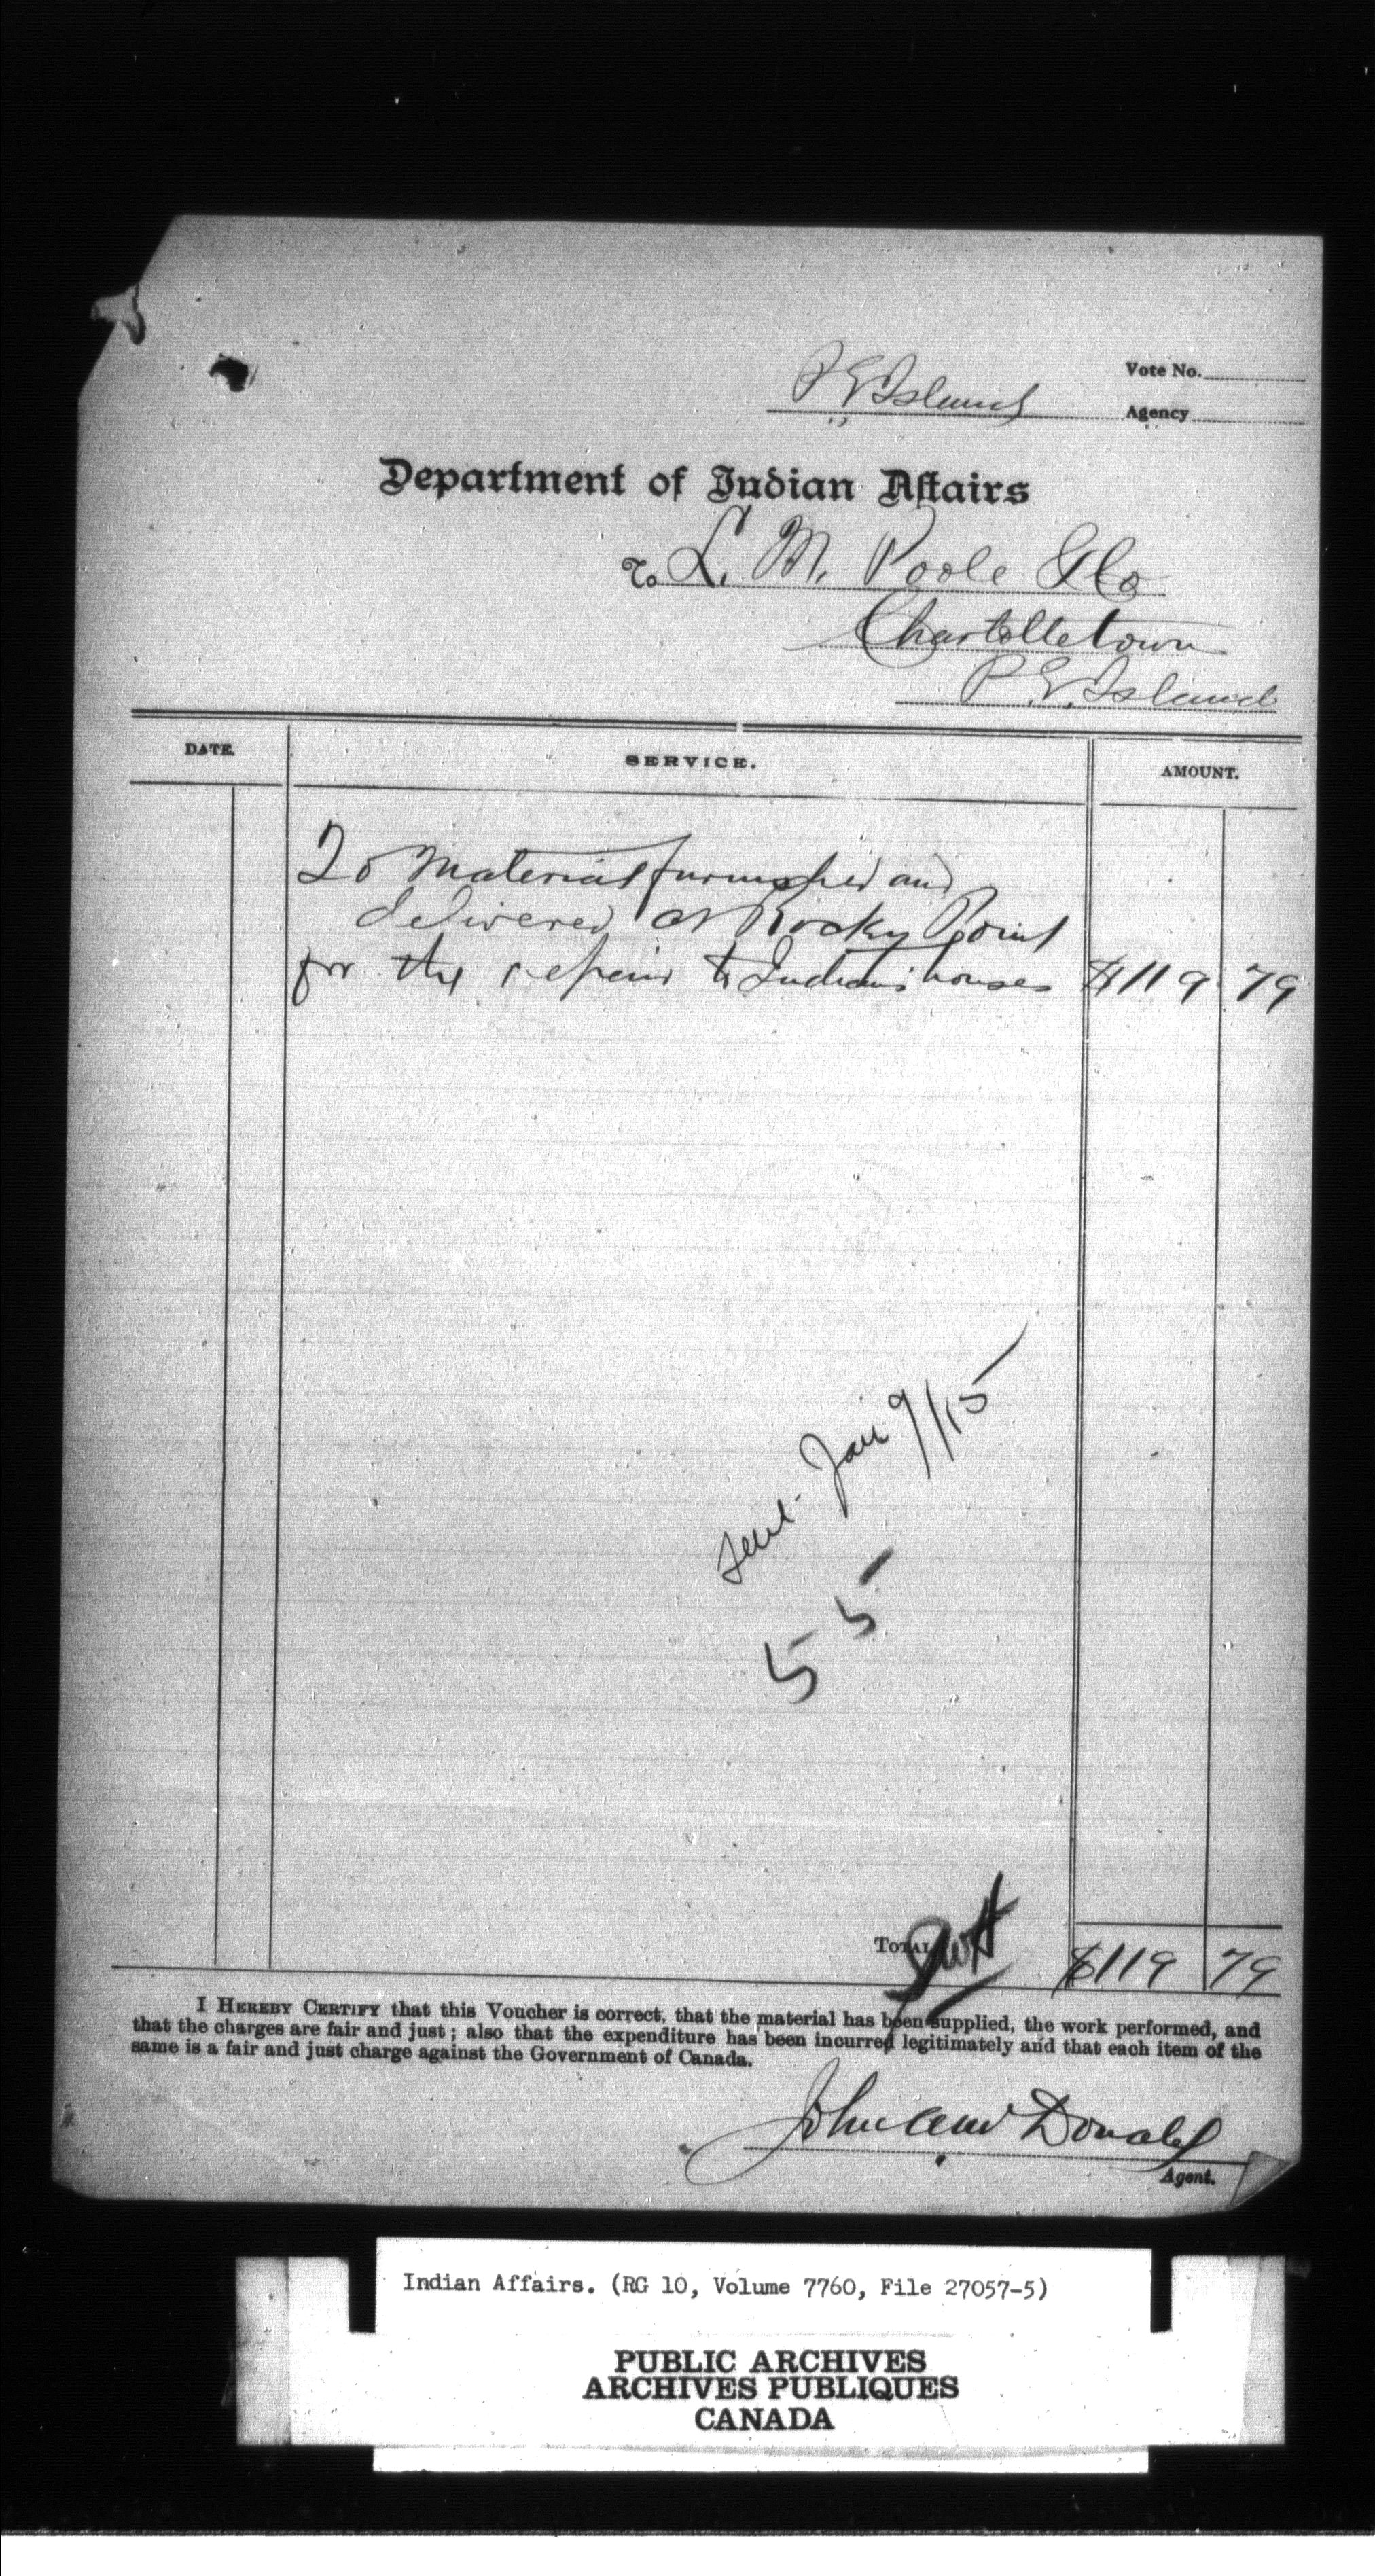 Vote No.
P E Island
Agency
Department of Indian Affairs
To L. M. Poole & Co
Charlottetown
P. E. Island
DATE. SERVICE. AMOUNT.
To material furnished and
delivered at Rocky Point
for the repairs to Indians houses $119 79
Sent Jan 9/15
55
TOTAL $119 79
I HEREBY CERTIFY that this Voucher is correct, that the material has been supplied, the work performed, and
that the charges are fair and just; also that the expenditure has been incurred legitimately and that each item of the
same is a fair and just charge against the Government of Canada.
John Donald
Agent.
Indian Affairs. (RG 10, Volume 7760, File 27057-5)
PUBLIC ARCHIVES
ARCHIVES PUBLIQUES
CANADA